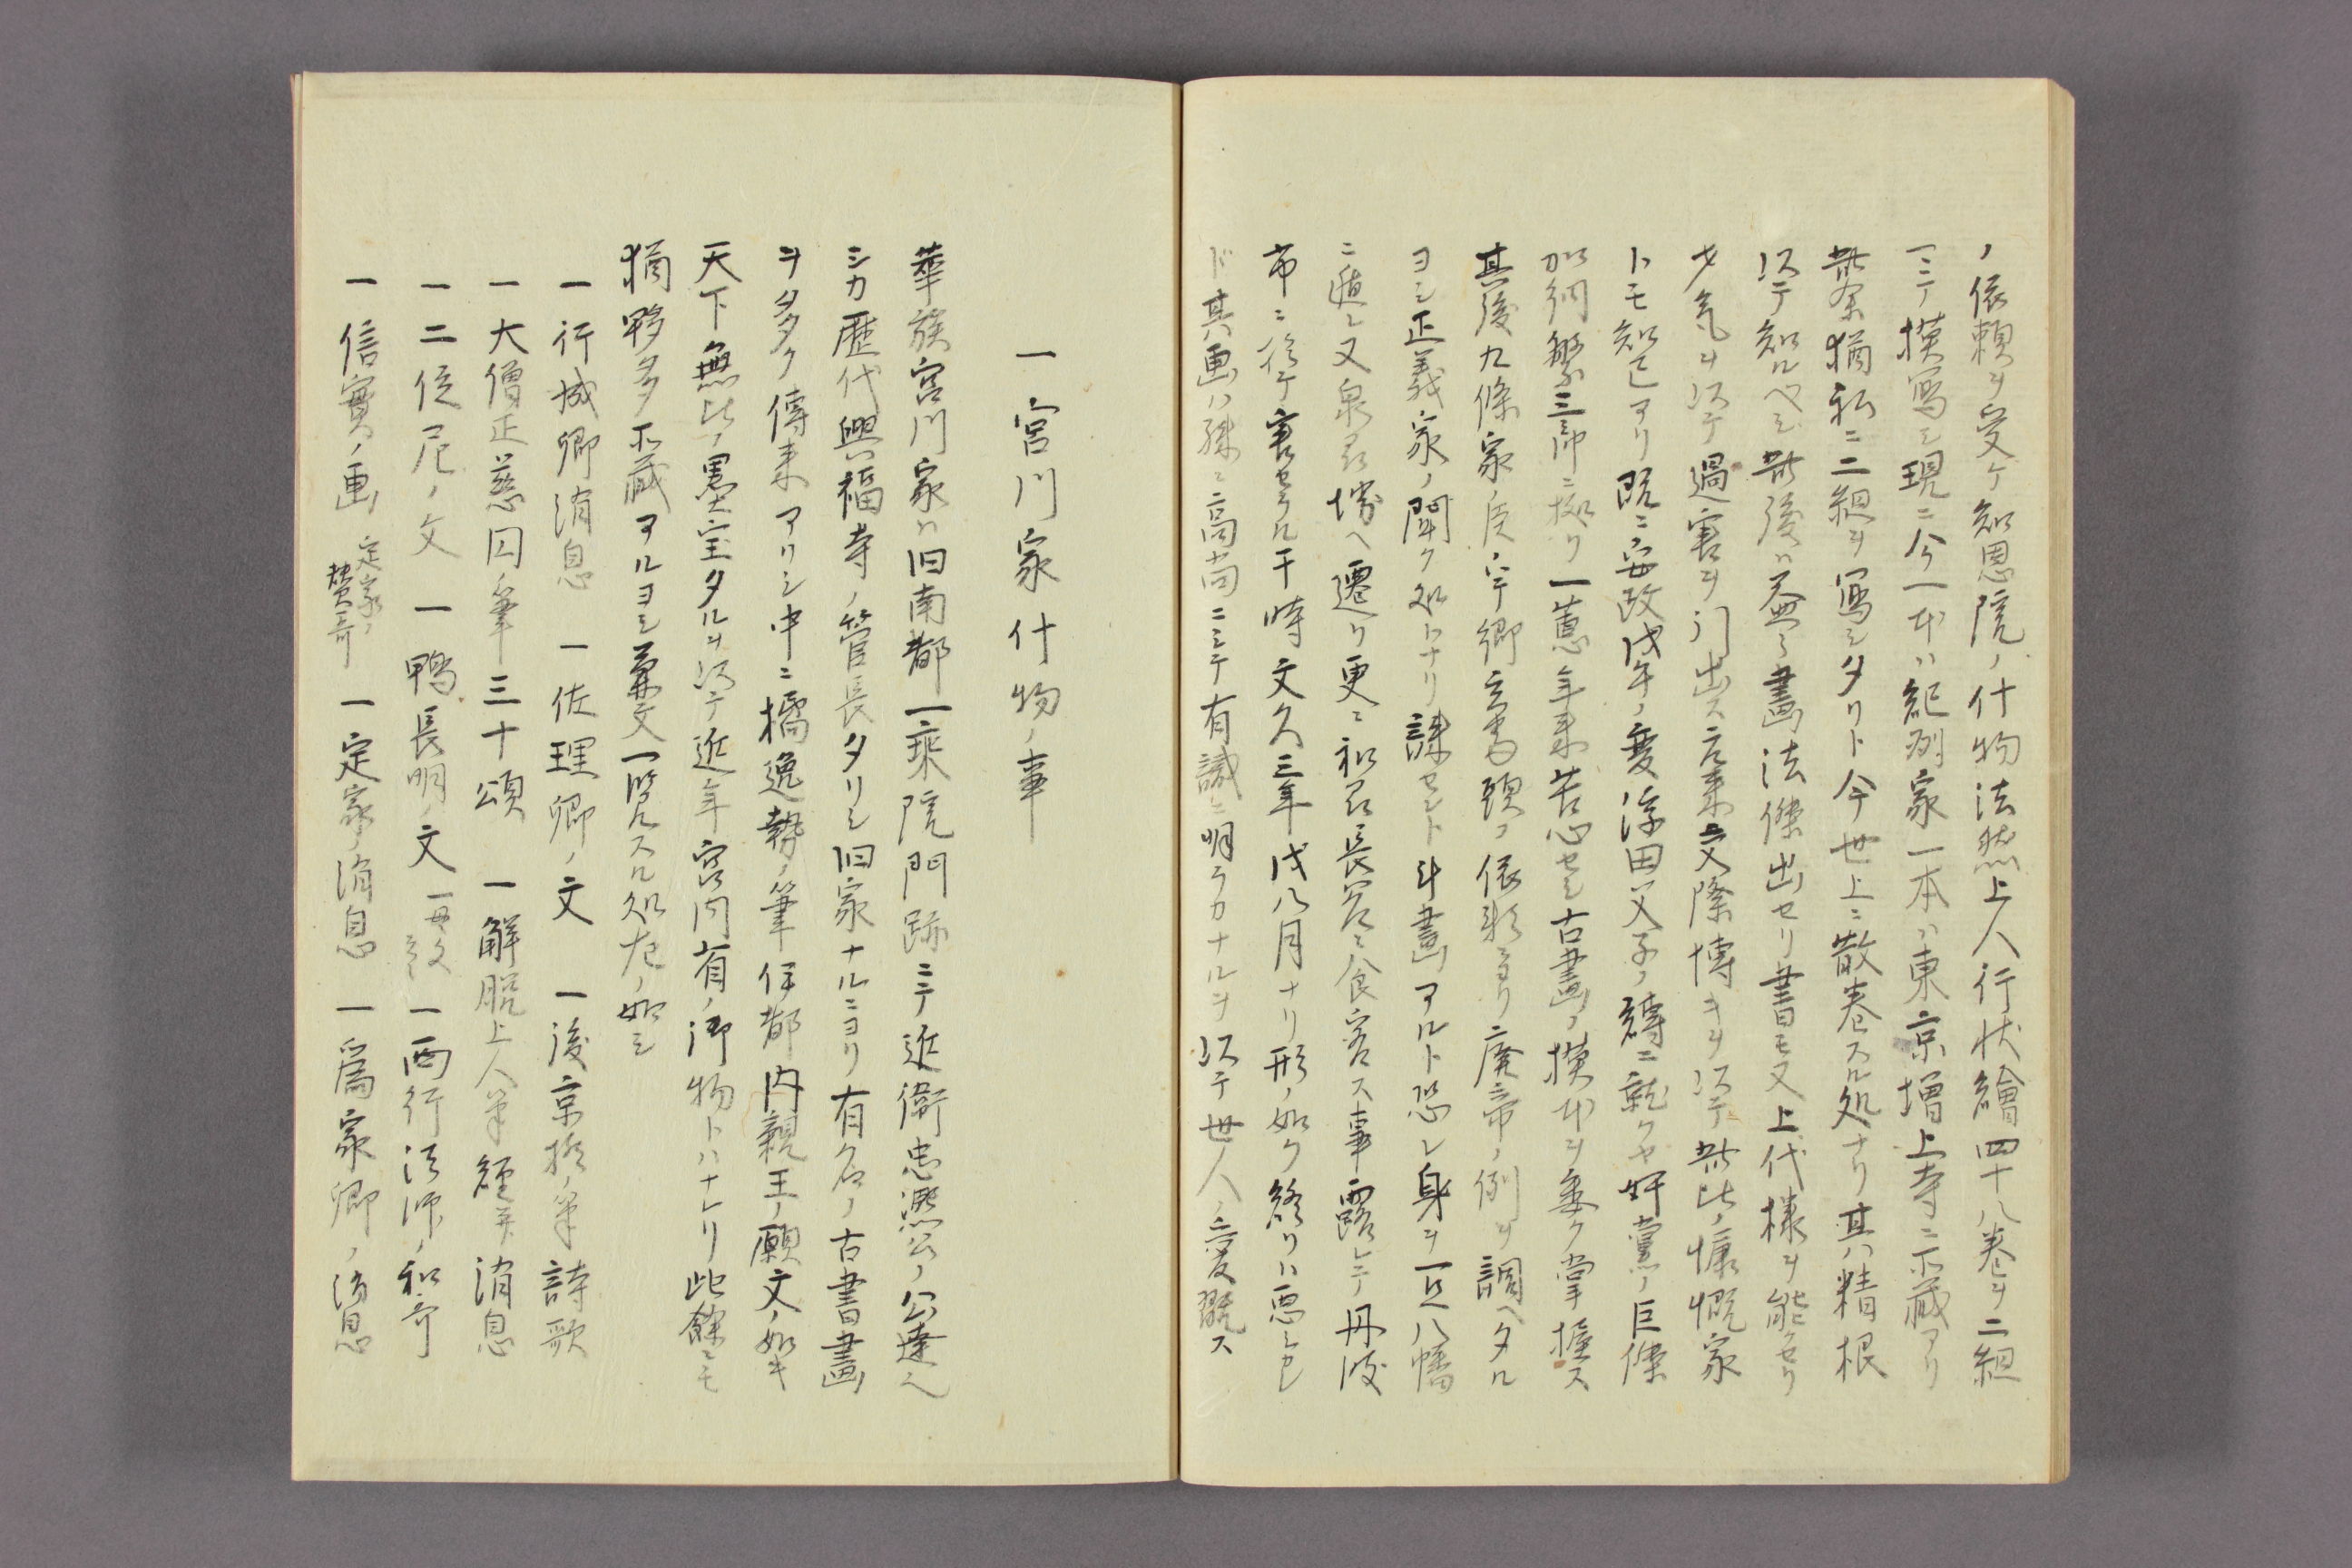 ノ依頼ヲ受ケ知恩院ノ什物法然上人行状繪四十八巻ヲ二組
マデ摸寫シ現ニ今一本ハ紀州家一本ハ東京増上寺ニ所藏アリ
此余猶私ニ二組ヲ寫シタリト今世上ニ散巻スル処ナリ其ハ精根
以テ知ルヘシ此後ハ益々書画法傑出セリ書モ又上代様ヲ能クセリ
才気ヲ以テ過言ヲ引出ス元来交際博キヲ以テ此比ノ慷慨家
トモ知己アリ既ニ安政戊午ノ変浮田父子ノ縛ニ就クヤ奸黨ノ巨傑
加納繁三郎ニ拠リ一蕙年来苦心セシ古畫ノ摸本ヲ悉ク掌握ス
其後九條家ノ臣宇郷玄蕃頭ノ依頼ヨリ廃帝ノ例ヲ調ヘタル
ヨシ正義家ノ聞ク処トナリ誅セント斗畫アルト恐レ身ヲ一旦八幡
ニ遁レ又泉刕堺ヘ遷リ更ニ和刕長谷ニ食客ス事露レテ丹波
市ニ於テ害セラル干時文久三年戊八月ナリ形ノ如ク終リハ悪シヒレ
ド其画ハ殊ニ高尚ニシテ有識ニ明ラカナルヲ以テ世人ノ愛翫ス
一宮川家什物ノ事
華族宮川家ハ旧南都一乘院門跡ニテ近衛忠凞公ノ公達ヘ
シカ歴代興福寺ノ管長タリシ旧家ナルニヨリ有名ノ古書畫
ヲ多多ク傳来アリシ中ニ橘逸勢ノ筆伊都内親王ノ願文ノ如キ
天下無比ノ墨宝タルヲ以テ近年宮内有ノ御物トハナレリ此餘ニモ
猶夥多所藏アルヨシ兼文一覧スル処左ノ如シ
一行成卿消息 一佐理卿ノ文 一後京極ノ筆詩歌
一大僧正慈円ノ筆三十頌 一解脱上人筆經并消息
一二位尼ノ文 一鴨長明ノ文 一西行法師ノ和哥
一信實ノ画 定家ノ賛哥 一定家ノ消息 一爲家卿ノ消息